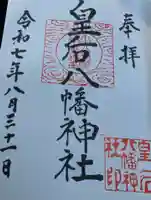 奉拝
皇后八幡神社
令和七年八月三十一日
皇后
八幡神
社印